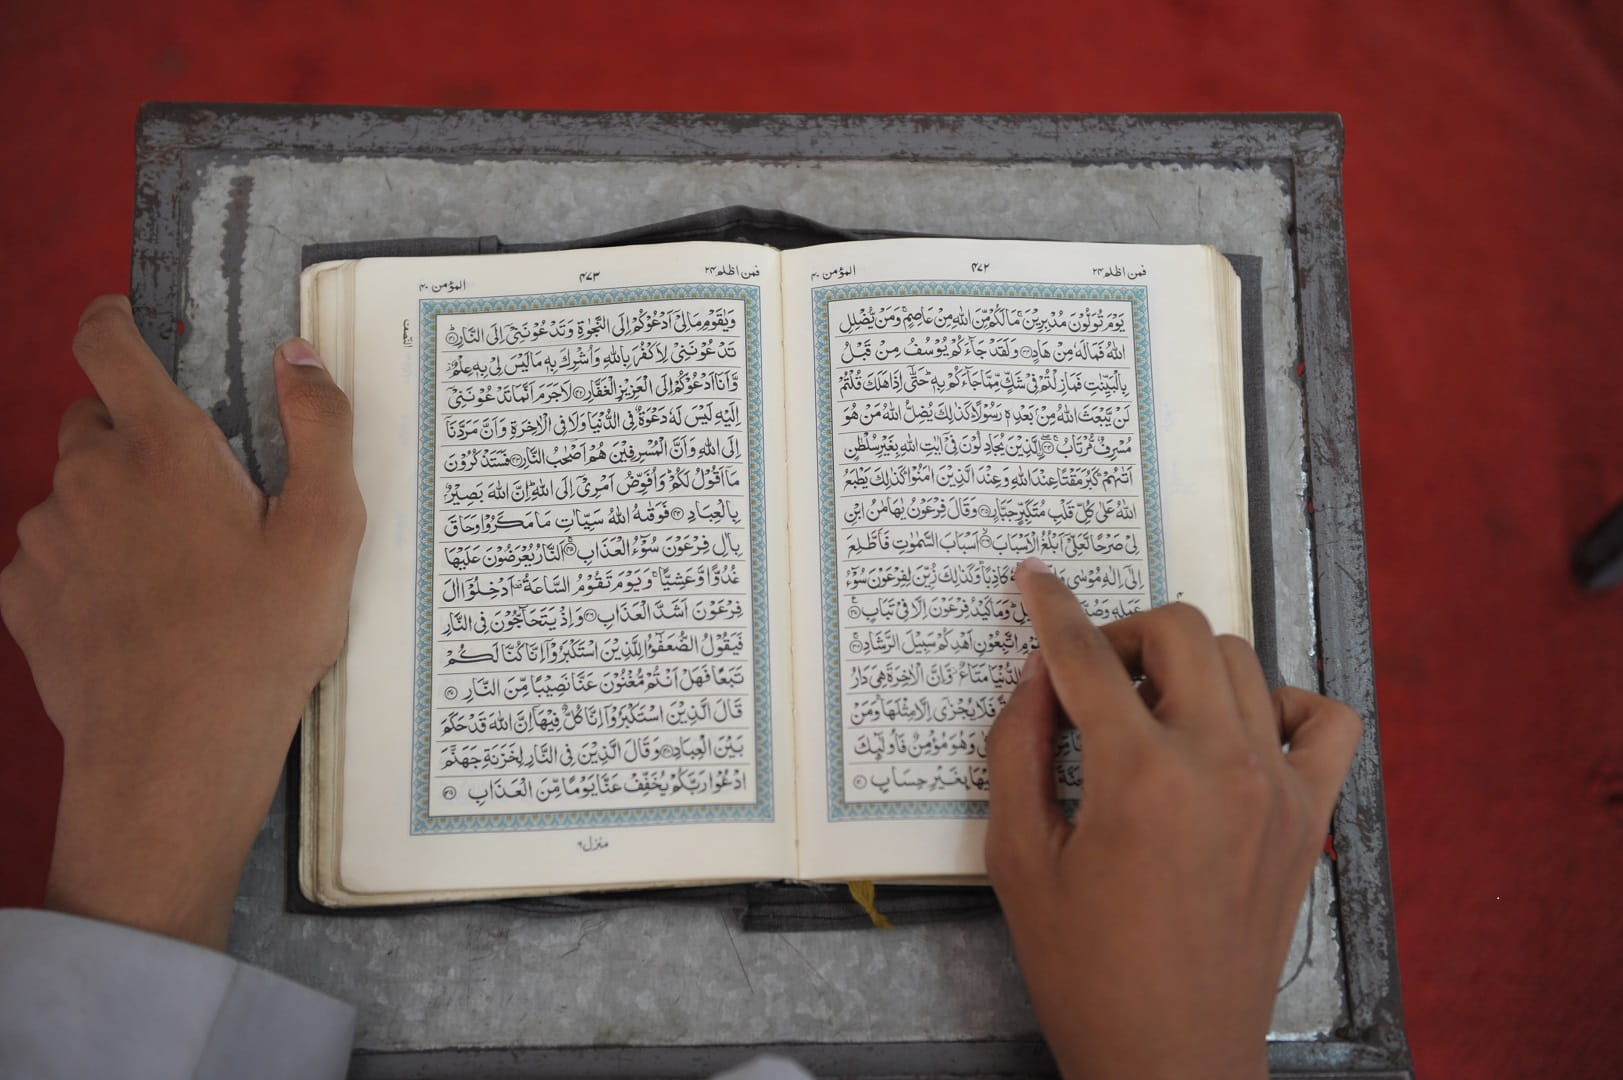 فمن اظلم ۲۴
۴۷۲
المؤمن ۴۰
يَوْمَ تُوَلُّوْنَ مُدْبِرِيْنَ ۚ مَا لَكُمْ مِّنَ اللّٰهِ مِنْ عَاصِمٍ ۚ وَمَنْ يُّضْلِلِ
اللّٰهُ فَمَا لَهٗ مِنْ هَادٍ ۳۳ وَلَقَدْ جَآءَكُمْ يُوْسُفُ مِنْ قَبْلُ
بِالْبَيِّنٰتِ فَمَا زِلْتُمْ فِيْ شَكٍّ مِّمَّا جَآءَكُمْ بِهٖ ؕ حَتّٰٓى اِذَا هَلَكَ قُلْتُمْ
لَنْ يَّبْعَثَ اللّٰهُ مِنْۢ بَعْدِهٖ رَسُوْلًا ؕ كَذٰلِكَ يُضِلُّ اللّٰهُ مَنْ هُوَ
مُسْرِفٌ مُّرْتَابُ ۳۴ الَّذِيْنَ يُجَادِلُوْنَ فِيْٓ اٰيٰتِ اللّٰهِ بِغَيْرِ سُلْطٰنٍ
اَتٰىهُمْ ؕ كَبُرَ مَقْتًا عِنْدَ اللّٰهِ وَعِنْدَ الَّذِيْنَ اٰمَنُوْا ؕ كَذٰلِكَ يَطْبَعُ
اللّٰهُ عَلٰى كُلِّ قَلْبِ مُتَكَبِّرٍ جَبَّارٍ ۳۵ وَقَالَ فِرْعَوْنُ يٰهَامٰنُ ابْنِ
لِيْ صَرْحًا لَّعَلِّيْٓ اَبْلُغُ الْاَسْبَابَ ۳۶ اَسْبَابَ السَّمٰوٰتِ فَاَطَّلِعَ
اِلٰٓى اِلٰهِ مُوْسٰى كَاذِبًا ؕ وَكَذٰلِكَ زُيِّنَ لِفِرْعَوْنَ سُوْٓءُ
عَمَلِهٖ وَصُدَّ وَمَا كَيْدُ فِرْعَوْنَ اِلَّا فِيْ تَبَابٍ ۳۷
اتَّبِعُوْنِ اَهْدِكُمْ سَبِيْلَ الرَّشَادِ ۳۸
الدُّنْيَا مَتَاعٌ ۫ وَّاِنَّ الْاٰخِرَةَ هِيَ دَارُ
فَلَا يُجْزٰٓى اِلَّا مِثْلَهَا ۚ وَمَنْ
وَهُوَ مُؤْمِنٌ فَاُولٰٓئِكَ
بِغَيْرِ حِسَابٍ ۴۰
فمن اظلم ۲۴
۴۷۳
المؤمن ۴۰
وَيٰقَوْمِ مَا لِيْٓ اَدْعُوْكُمْ اِلَى النَّجٰوةِ وَتَدْعُوْنَنِيْٓ اِلَى النَّارِ ۴۱
تَدْعُوْنَنِيْ لِاَكْفُرَ بِاللّٰهِ وَاُشْرِكَ بِهٖ مَا لَيْسَ لِيْ بِهٖ عِلْمٌ
وَّاَنَا اَدْعُوْكُمْ اِلَى الْعَزِيْزِ الْغَفَّارِ ۴۲ لَا جَرَمَ اَنَّمَا تَدْعُوْنَنِيْٓ
اِلَيْهِ لَيْسَ لَهٗ دَعْوَةٌ فِي الدُّنْيَا وَلَا فِي الْاٰخِرَةِ وَاَنَّ مَرَدَّنَآ
اِلَى اللّٰهِ وَاَنَّ الْمُسْرِفِيْنَ هُمْ اَصْحٰبُ النَّارِ ۴۳ فَسَتَذْكُرُوْنَ
مَآ اَقُوْلُ لَكُمْ ؕ وَاُفَوِّضُ اَمْرِيْٓ اِلَى اللّٰهِ ؕ اِنَّ اللّٰهَ بَصِيْرٌۢ
بِالْعِبَادِ ۴۴ فَوَقٰىهُ اللّٰهُ سَيِّاٰتِ مَا مَكَرُوْا وَحَاقَ
بِاٰلِ فِرْعَوْنَ سُوْٓءُ الْعَذَابِ ۴۵ اَلنَّارُ يُعْرَضُوْنَ عَلَيْهَا
غُدُوًّا وَّعَشِيًّا ۚ وَيَوْمَ تَقُوْمُ السَّاعَةُ اَدْخِلُوْٓا اٰلَ
فِرْعَوْنَ اَشَدَّ الْعَذَابِ ۴۶ وَاِذْ يَتَحَآجُّوْنَ فِي النَّارِ
فَيَقُوْلُ الضُّعَفٰٓؤُا لِلَّذِيْنَ اسْتَكْبَرُوْٓا اِنَّا كُنَّا لَكُمْ
تَبَعًا فَهَلْ اَنْتُمْ مُّغْنُوْنَ عَنَّا نَصِيْبًا مِّنَ النَّارِ ۴۷
قَالَ الَّذِيْنَ اسْتَكْبَرُوْٓا اِنَّا كُلٌّ فِيْهَآ ۙ اِنَّ اللّٰهَ قَدْ حَكَمَ
بَيْنَ الْعِبَادِ ۴۸ وَقَالَ الَّذِيْنَ فِي النَّارِ لِخَزَنَةِ جَهَنَّمَ
ادْعُوْا رَبَّكُمْ يُخَفِّفْ عَنَّا يَوْمًا مِّنَ الْعَذَابِ ۴۹
منزل ۶